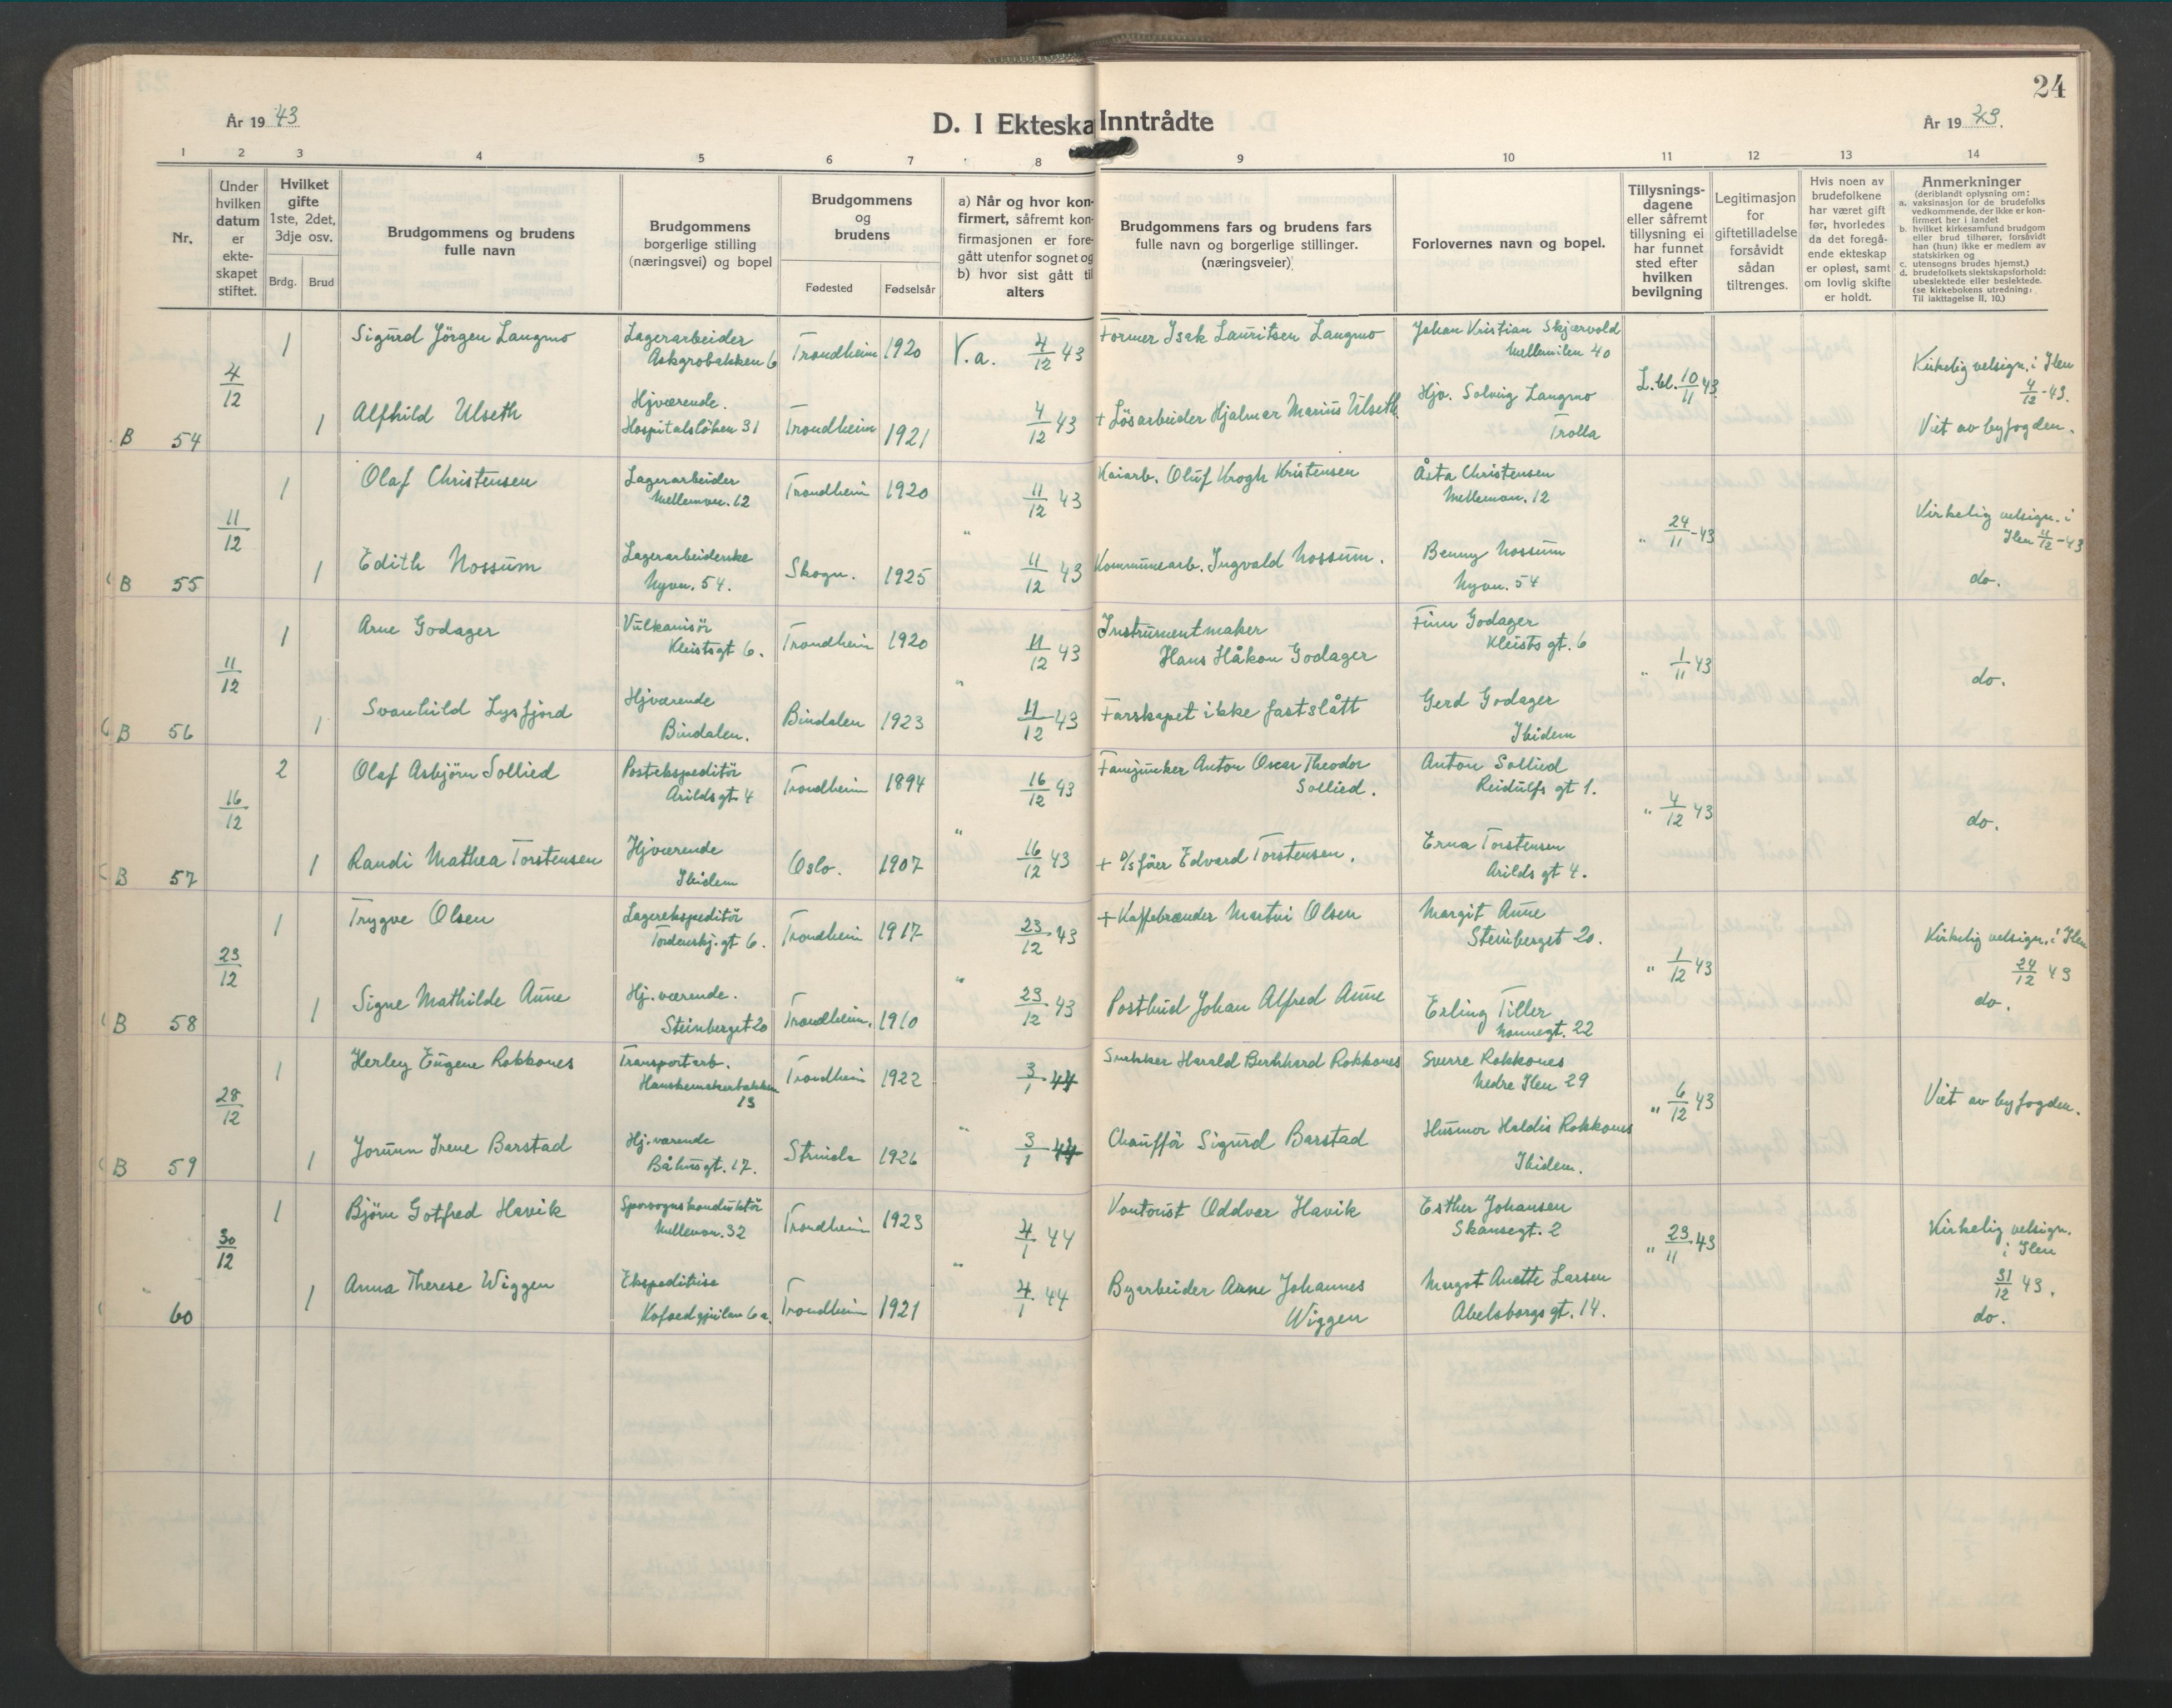 24
År 1943
D. I Ekteska Inntrådte
År 1943.
1 2 3 4 5 6 7 8 9 10 11 12 13 14
Nr.
Under hvilken datum er ekte-skapet stiftet.
Hvilket gifte 1ste, 2det, 3dje osv.
Brdg. Brud
Brudgommens og brudens fulle navn
Brudgommens borgerlige stilling (næringsvei) og bopel
Brudgommens og brudens
Fødested Fødselsår
a) Når og hvor kon-firmert, såfremt kon-firmasjonen er fore-gått utenfor sognet og
b) hvor sist gått til alters
Brudgommens fars og brudens fars fulle navn og borgerlige stillinger. (næringsveier)
Forlovernes navn og bopel.
Tillysnings-dagene eller såfremt tillysning ei har funnet sted efter hvilken bevilgning
Legitimasjon for giftetilladelse forsåvidt sådan tiltrenges.
Hvis noen av brudefolkene har været gift før, hvorledes da det foregå-ende ekteskap er opløst, samt om lovlig skifte er holdt.
Anmerkninger
(deriblandt oplysning om:
a. vaksinasjon for de brudefolks vedkommende, der ikke er kon-firmert her i landet
b. hvilket kirkesamfund brudgom eller brud tilhører, forsåvidt han (hun) ikke er medlem av statskirken og
c. utensogns brudes hjemst.)
d. brudefolkets slektskapsforhold: ubeslektede eller beslektede.
(se kirkebokens utredning: Til iakttagelse II, 10.)
B 54
4/12
1 Sigurd Jörgen Langmo
Lagerarbeider
Askgrobakken 6
Trondheim 1920
V. a. 4/12 43
Former Isak Lauritsen Langmo
Johan Kristian Skjærvold
Mellemilen 40
L.bl. 10/11 43
Kirkelig velsign. i Ilen
4/12-43.
1 Alfhild Ulseth
Hjværende.
Hospitalslöken 31
Trondheim 1921
4/12 43
+ Lösarbeider Hjalmar Marius Ulseth
Hjv. Solveig Langmo
Trolla
Viet av byfogden.
B 55
11/12
1 Olaf Christensen
Lagerarbeider
Melleman. 12
Trondheim 1920
11/12 43
Kaiarb. Oluf Krogh Kristensen
Åsta Christensen
Melleman. 12
" 24/11-43
Kirkelig velsign. i
Ilen 11/12-43
1 Edith Nossum
Lagerarbeiderske
Nyvn. 54.
Skogn. 1925
" 11/12 43
Kommunearb. Ingvald Nossum.
Benny Nossum
Nyvn. 54
do.
B 56
11/12
1 Arne Godager
Vulkanisör
Kleistsgt 6.
Trondheim 1920
11/12 43
Instrumentmaker
Hans Håkon Godager
Finn Godager
Kleists gt. 6
" 1/11 43
do.
1 Svanhild Lysfjord
Hjværende
Bindalen.
Bindalen 1923
" 11/12 43
Farskapet ikke fastslått
Gerd Godager
Ibidem
B 57
16/12
2 Olaf Asbjörn Sollied
Postekspeditör
Arilds gt. 4
Trondheim 1894
16/12 43
Fanejunker Anton Oscar Theodor
Sollied.
Anton Sollied
Reidulfs gt 1.
" 4/12 43
do.
1 Randi Mathea Torstensen
Hjværende
Ibidem
Oslo. 1907
" 16/12 43
+ D/s förer Edvard Torstensen.
Erna Torstensen
Arilds gt 4.
B 58
23/12
1 Trygve Olsen
Lagerekspeditör
Tordenskj. gt 6.
Trondheim 1917
23/12 43
+ Kaffebrænder Martin Olsen
Margit Aune
Steinberget 20.
" 1/12 43
Kirkelig velsign. i Ilen
24/12 43
1 Signe Mathilde Aune
Hj. værende.
Steinberget 20
Trondheim. 1910
" 23/12 43
Postbud Johan Alfred Aune
Erling Tiller
Nonnegt. 22
do.
B 59
28/12
1 Herley Eugene Rokkones
Transportarb.
Hanskemakerbakken
13
Trondheim 1922
3/1 44
Snekker Harald Bernhard Rokkones
Sverre Rokkones
Nedre Ilen 29
" 6/12 43
Viet av byfogden.
1 Jorunn Irene Barstad
Hj. værende
Båhusgt. 17.
Strinda 1926
" 3/1 44
Chaufför Sigurd Barstad
Husmor Haldis Rokkones
Ibidem.
60
30/12
1 Björn Gotfred Havik
Sporvognskonduktör
Melleman. 32
Trondheim 1923
4/1 44
Kontorist Oddvar Havik
Esther Johansen
Skansegt. 2
" 23/11 43
Kirkelig velsign.
i Ilen
31/12 43.
1 Anna Therese Wiggen
Ekspeditrise
Kofoedgjeilan 6a.
Trondheim 1921
" 4/1 44
Byarbeider Arne Johannes
Wiggen
Margot Anette Larsen
Abelsborgs gt. 14.
do.